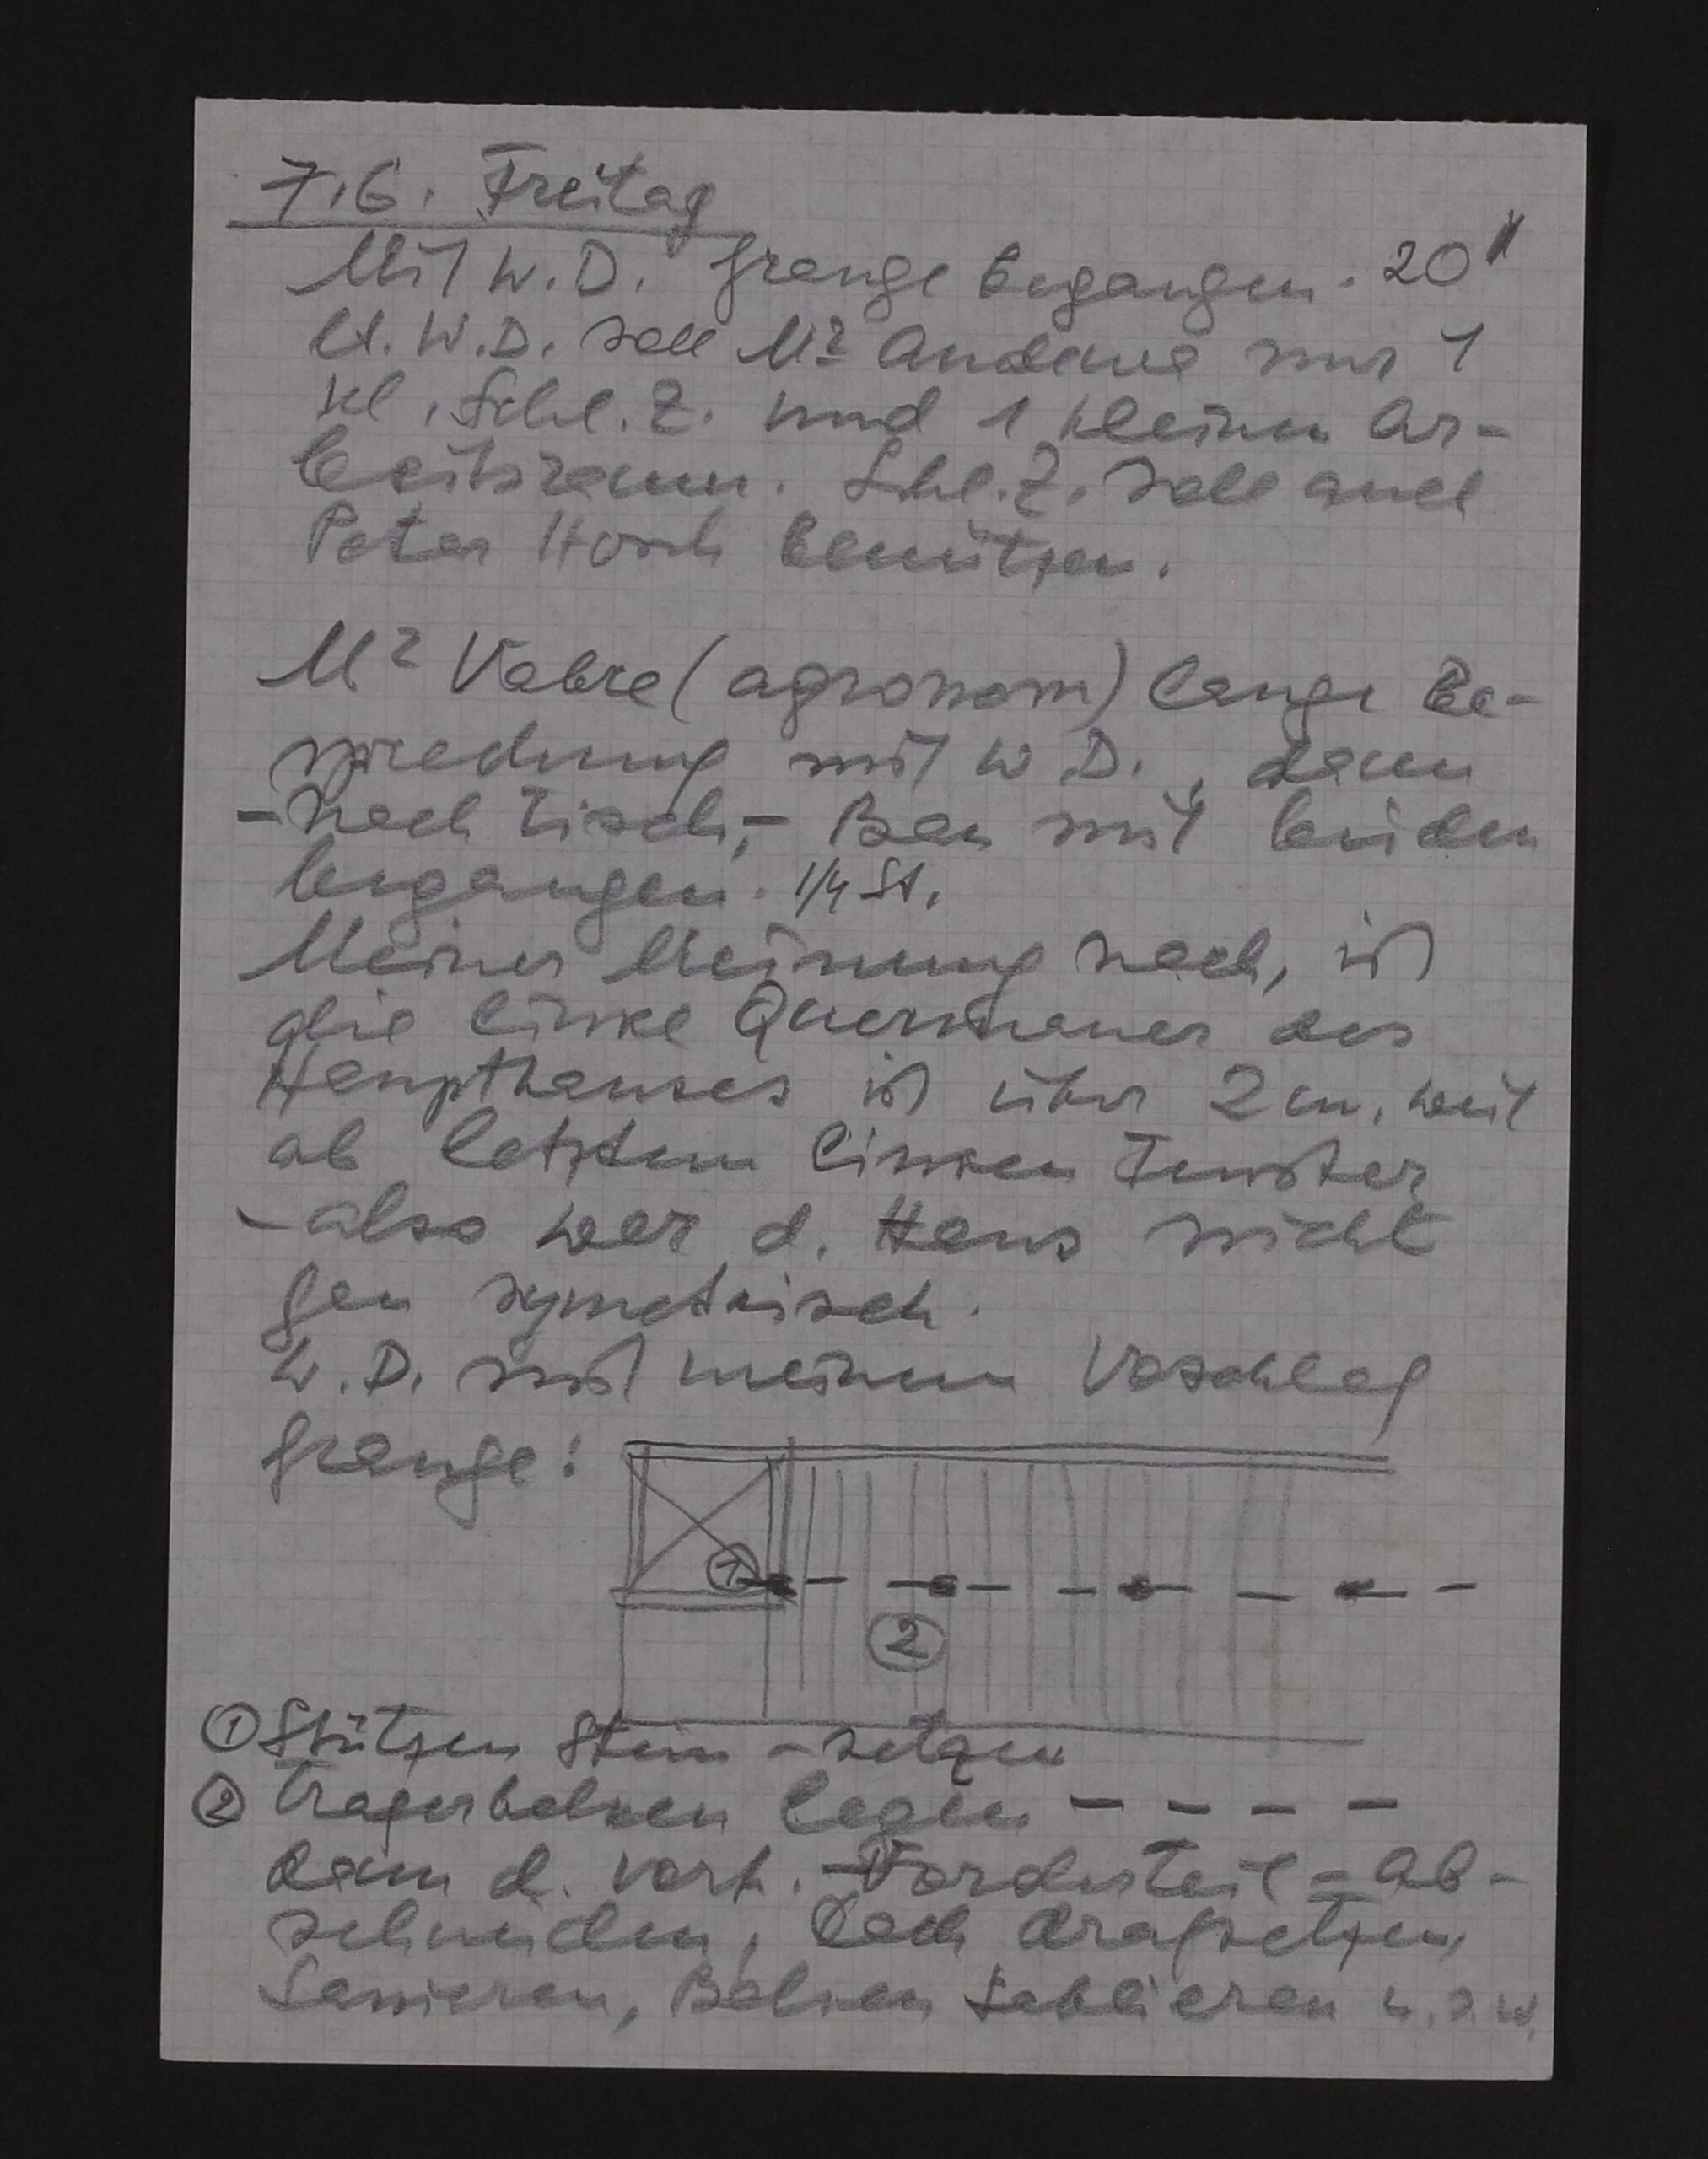 7.6. Freitag
Mit W.D. grange begangen. 20"
lt. W.D. soll Mr Andane nur 1
kl. Schl.Z. und 1 kleinen Ar-
beitsraum. Schl.Z. soll auch
Peter Hosch benützen.
Mr Vabre (agronom) lange Be-
sprechung mit W D., dann
-nach Tisch,- Bau mit beiden
begangen. 1/4 St.
Meiner Meinung nach, ist
die linke Quermauer des
Haupthauses ist über 2 m. weit
ab letztem linken Fenster
-also war d. Haus nicht
gan symetrisch.
W.D. mit meinem Voschlag
grange:
1
2
① Stützen Stein - setzen
② Tragerbalken legen - - - -
dann d. vorh. - Vorderteil - ab-
schneiden, Dach draufsetzen,
Sanieren, Balken sablieren u.s.w.